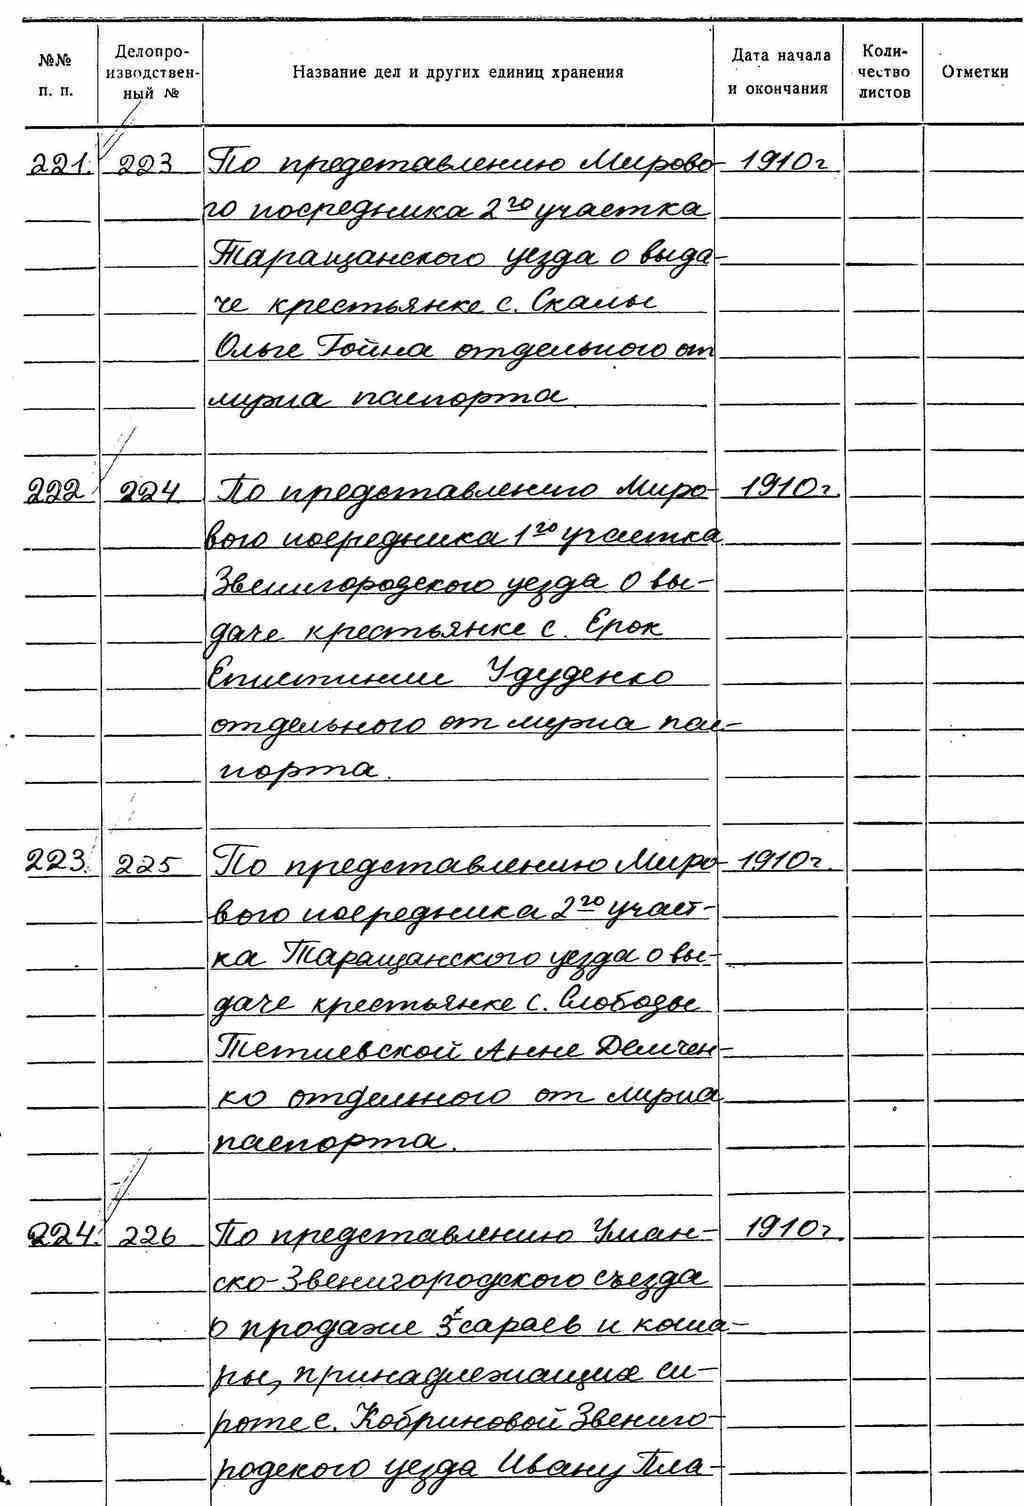 №№ п. п. Делопро- изводствен- ный № Название дел и других единиц хранения Дата начала и окончания Коли- чество листов Отметки
221. 223 По представлению Мирово- 1910 г
го посредника 2го участка
Таращанского уезда о выда-
че крестьянке с. Скалы
Ольге Гойна отдельного от
мужа паспорта.
222 224 По представлению Миро- 1910 г.
вого посредника 1го участка
Звенигородского уезда о вы-
даче крестьянке с. Ерок
Епистинии Удуденко
отдельного от мужа пас-
порта.
223. 225 По представлению Миро- 1910 г.
вого посредника 2го участ-
ка Таращанского уезда о вы-
даче крестьянке с. Слободы
Тетиевской Анне Демчен-
ко отдельного от мужа
паспорта.
224. 226 По представлению Уман- 1910 г.
ско-Звенигородского съезда
о продаже 3х сараев и коша-
ры, принадлежащих си-
роте с. Кобриновой Звениго-
родского уезда Ивану Пла-